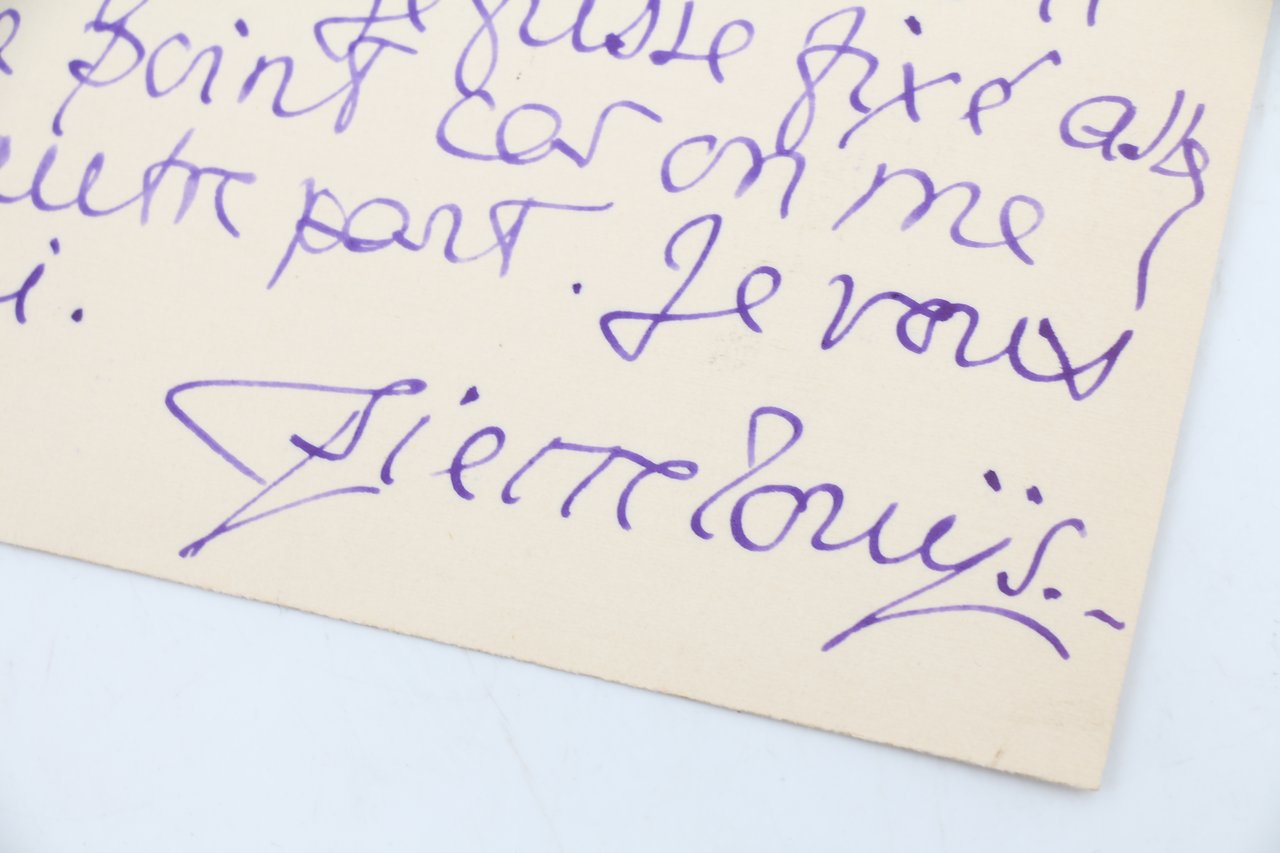 fusse fixé
point car on me
autre part. Je vous
i.
Pierre Louÿs.-